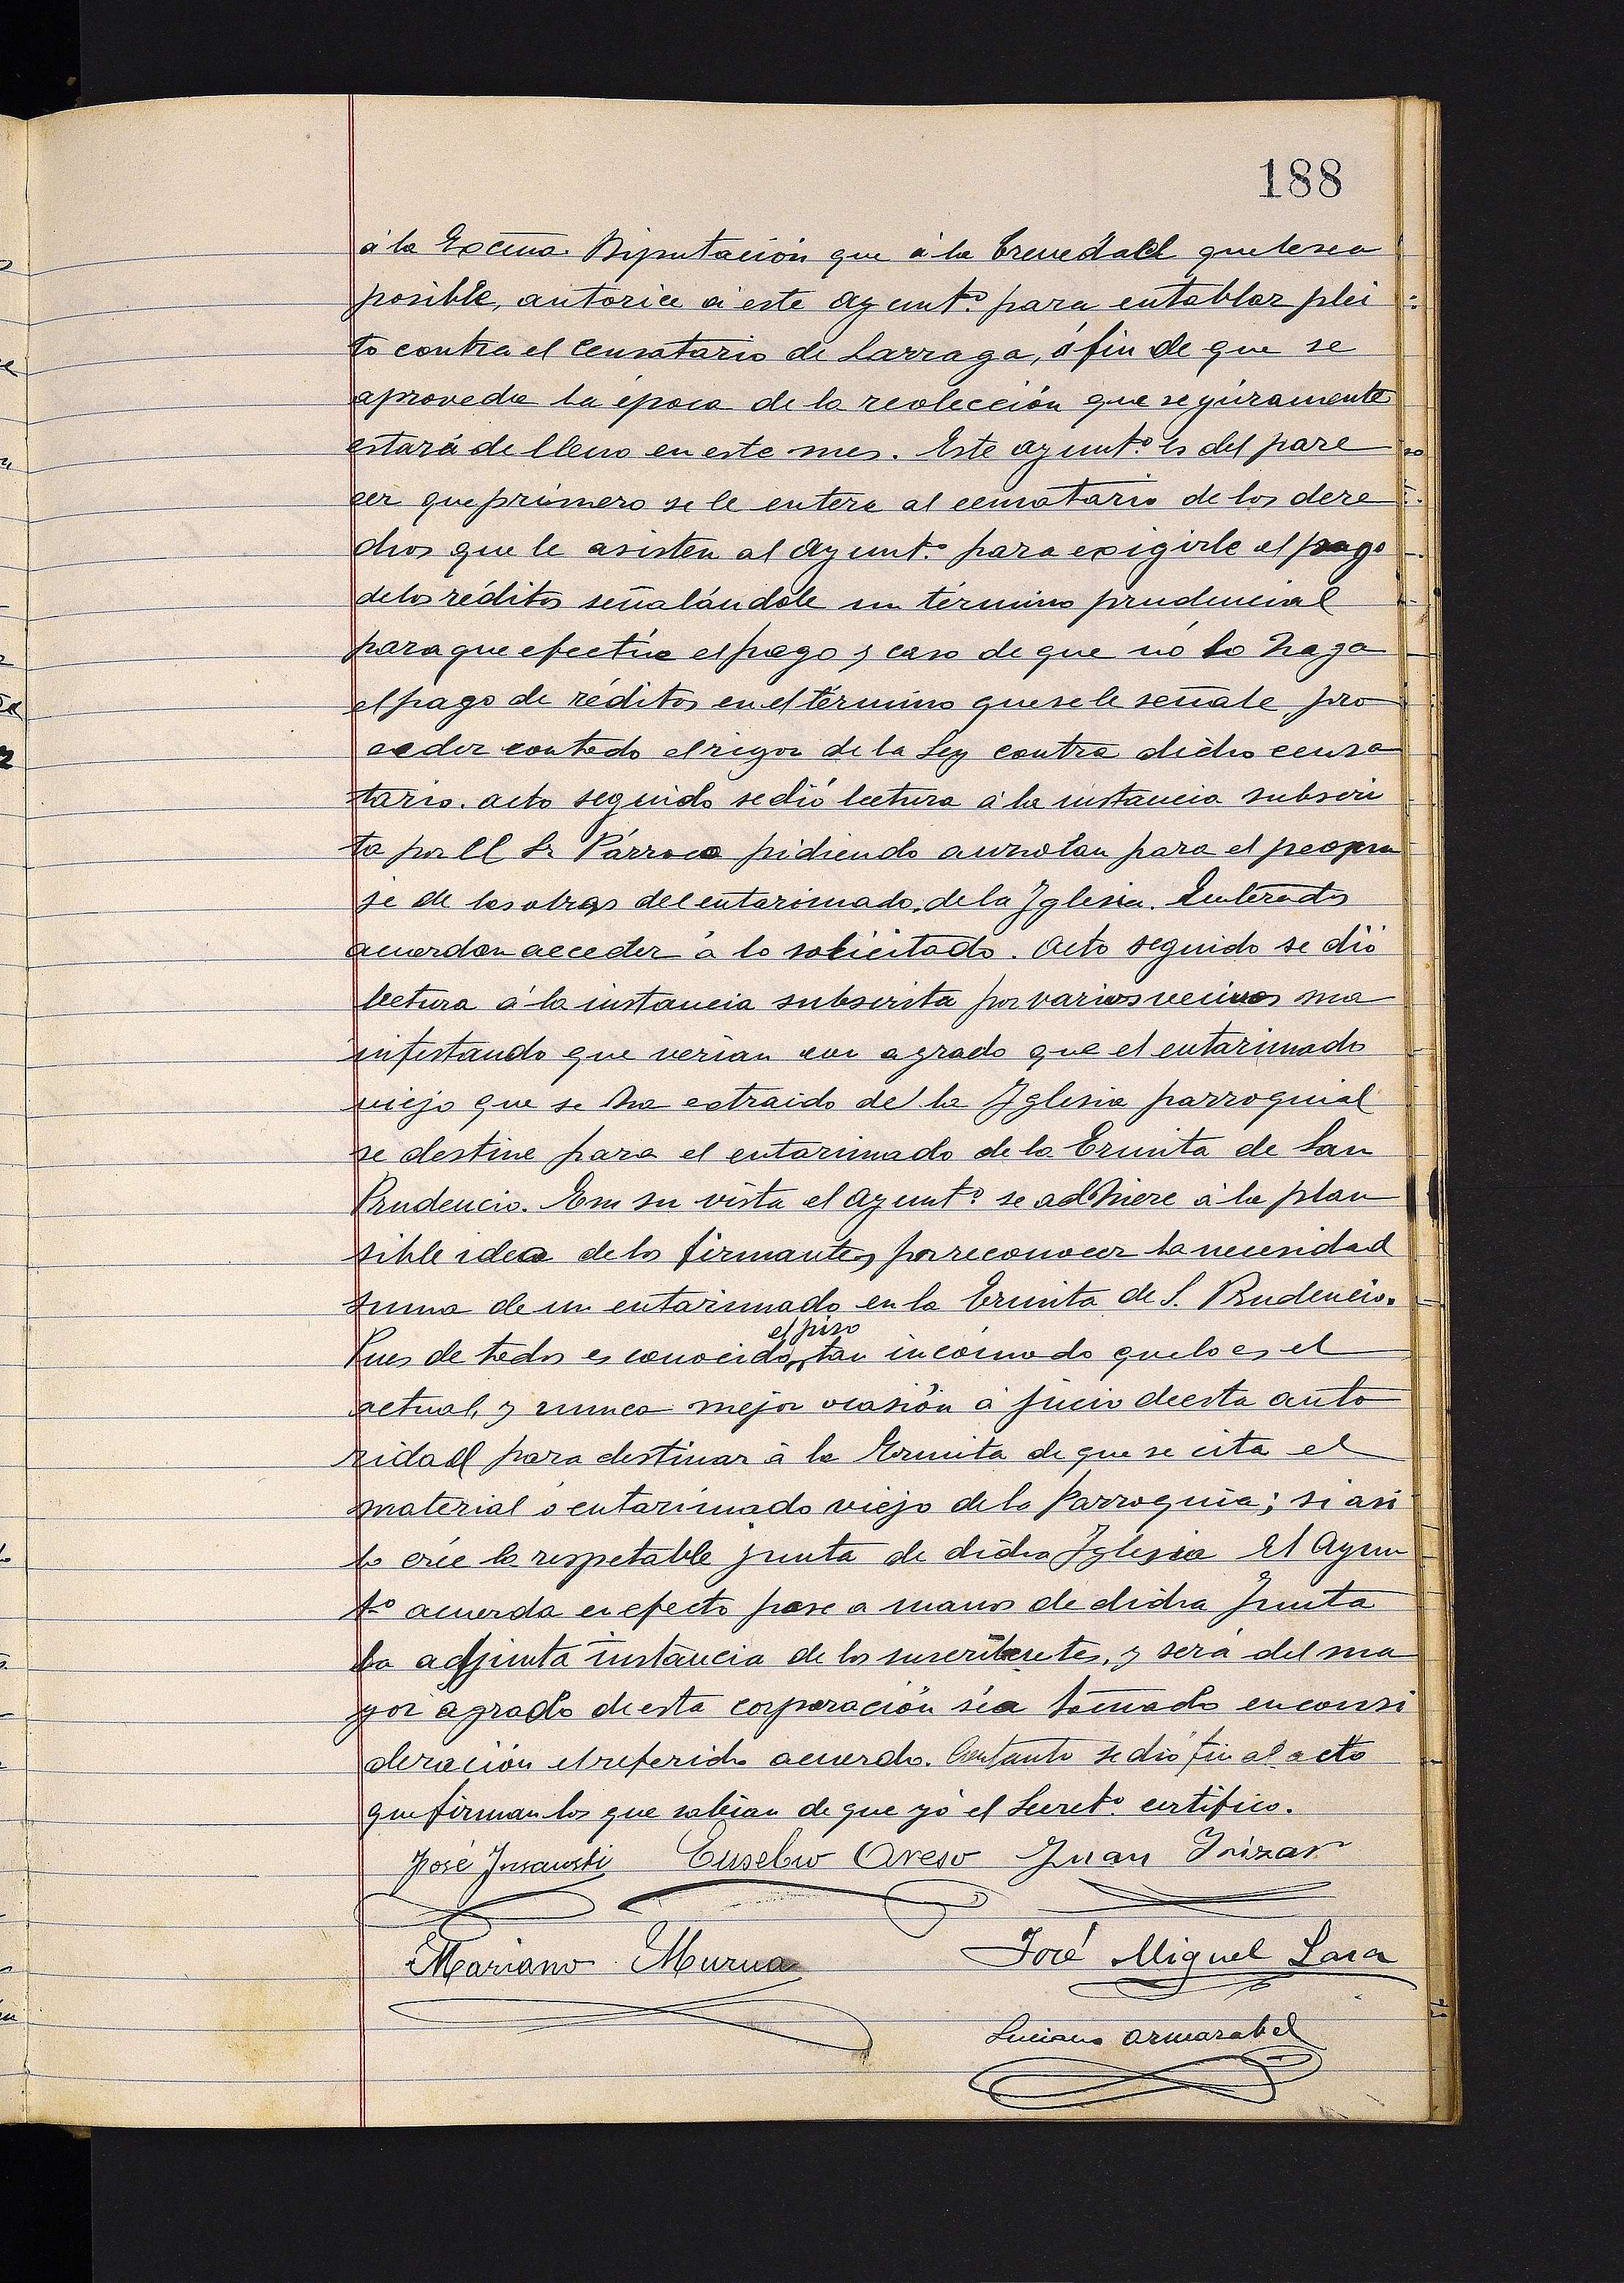 188
á la Excma. Diputación que á la brevedad que le sea
posible, autorice á este Ayunt.º para entablar plei
to contra el Censatario de Larraga, á fin de que se
aproveche la época de la recolección que seguramente
estará de lleno en este mes. Este Ayunt.º es del pare
cer que primero se le entere al censatario de los dere
chos que le asisten al Ayunt.º para exigirle el pago
de los réditos señalándole un término prudencial
para que efectúe el pago y caso de que no lo haga
el pago de réditos en el término que se le señale, pro
ceder con todo el rigor de la Ley contra dicho censa
tario. Acto seguido se dió lectura á la instancia subscri
ta por el Sr. Párroco pidiendo auzolan para el
je de las obras del entarimado de la Iglesia. Enterados
acuerdan acceder á lo solicitado. Acto seguido se dió
lectura á la instancia subscrita por varios vecinos ma
nifestando que verian con agrado que el entarimado
viejo que se ha extraido de la Iglesia parroquial
se destine para el entarimado de la Ermita de San
Prudencio. En su vista el Ayunt.º se adhiere á la plau
sible idea de los firmantes, por reconocer la necesidad
suma de un entarimado en la Ermita de S. Prudencio.
el piso
Pues de todos es conocido, tan incómodo que lo es el
actual, y nunca mejor ocasión á juicio de esta auto
ridad para destinar á la Ermita de que se cita el
material ó entarimado viejo de la Parroquia; si asi
lo crée la respetable junta de dicha Iglesia El Ayun
t.º acuerda en efecto pase a manos de dicha Junta
la adjunta instancia de los suscribentes, y será del ma
yor agrado de esta corporación sea tomado en consi
deración el referido acuerdo. Con tanto se dió fin al acto
que firman los que sabian de que yo el Secret.º certifico.
José Insausti Eusebio Areso Juan Irizar
Mariano Murua José Miguel Lasa
Luciano Ormazabal